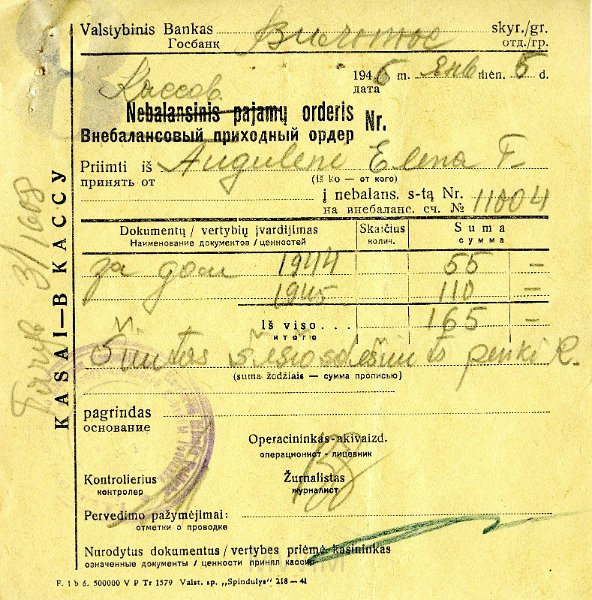 Valstybinis Bankas skyr./gr.
Госбанк отд./гр.
Кассов
194 6 m. Янв mėn. 5 d.
дата
Nebalansinis pajamų orderis Nr.
Внебалансовый приходный ордер
Priimti iš Augulienė Elena F.
принять от (iš ko — от кого)
į nebalans. s-tą Nr. 11004
на внебаланс. сч. №
Dokumentų / vertybių įvardijimas Skaičius Suma
Наименование документов / ценностей колич. сумма
за дом 1944 55 =
1945 110 =
Iš viso... 165 =
итого
Šimtas šešiasdešimts penki R.
(suma žodžiais — сумма прописью)
pagrindas
основание
Operacininkas-akivaizd.
операционист - лицевник
Kontrolierius Žurnalistas
контролер журналист
Pervedimo pažymėjimai:
отметки о проводке
Nurodytus dokumentus / vertybes priėmė kasininkas
означенные документы / ценности принял кассир
F. 1 b 6. 500000 V P Tr 1579 Valst. sp. „Spindulys" 218—41
KASAI—В КАССУ
3/1608